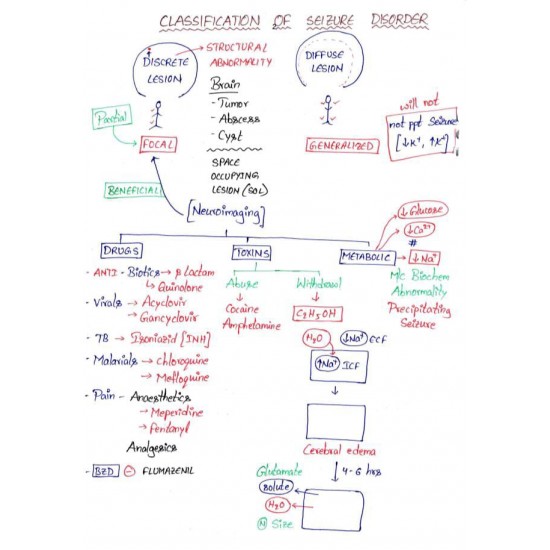 CLASSIFICATION OF SEIZURE DISORDER
DISCRETE LESION
STRUCTURAL ABNORMALITY
DIFFUSE LESION
Brain
- Tumor
- Abscess
- Cyst
Partial
FOCAL
GENERALIZED
will not
not ppt Seizure
[↓K⁺, ↑K⁺]
SPACE
OCCUPYING
LESION (SOL)
BENEFICIAL
[Neuroimaging]
↓Glucose
↓Ca²⁺
#
DRUGS
TOXINS
METABOLIC → ↓Na⁺
- ANTI - Biotics → β Lactam
↳ Quinolone
- Virals → Acyclovir
↳ Gancyclovir
- TB → Isoniazid [INH]
- Malarials → Chloroquine
→ Mefloquine
- Pain - Anaesthetics
→ Meperidine
→ Fentanyl
Analgesics
- BZD ⊖ FLUMAZENIL
Abuse
Cocaine
Amphetamine
Withdrawal
C₂H₅OH
M/c Biochem
Abnormality
Precipitating
Seizure
H₂O
↓Na⁺ ECF
↑Na⁺ ICF
Cerebral edema
Glutamate
↓ 4-6 hrs
Solute
H₂O
Ⓝ Size